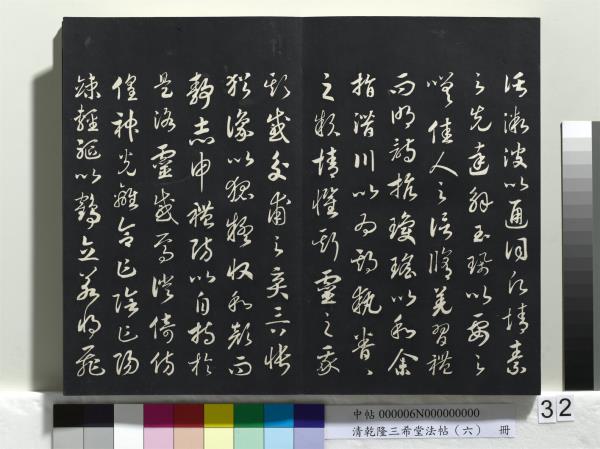 託微波以通詞願情素
之先達解玉珮以要之
嗟佳人之信脩羌習禮
而明詩抗瓊珶以和余
指潛川以為期執眷々
之款情懼斯靈之我
欺感交甫之棄言悵
猶豫以狐疑收和顏而
靜志申禮防以自持於
是洛靈感焉徙倚傍
徨神光離合乍陰乍陽
竦輕軀以鶴立若將飛
中帖 000006N000000000
清乾隆三希堂法帖（六） 冊
32